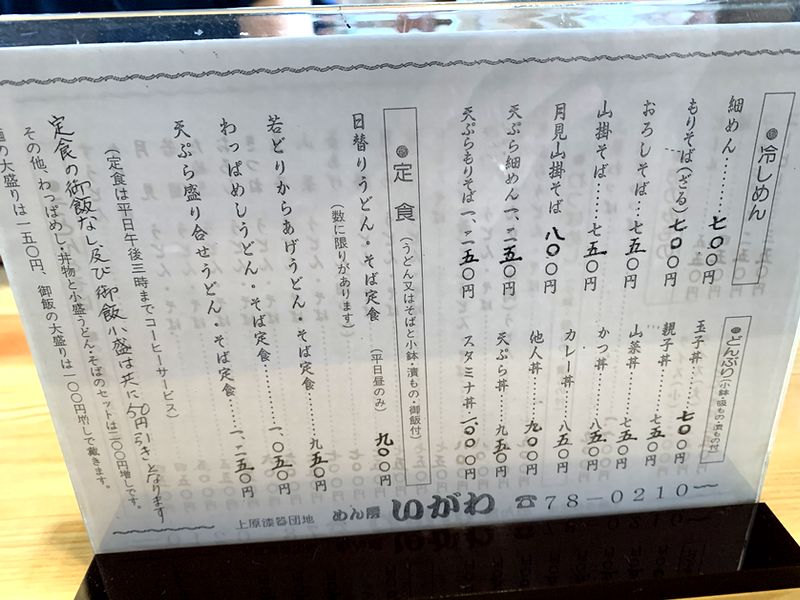 ◉冷しめん
細めん………七〇〇円
もりそば(ざる)七〇〇円
おろしそば…七五〇円
山掛そば……七五〇円
月見山掛そば 八〇〇円
天ぷら細めん一、二五〇円
天ぷらもりそば一、二五〇円
◉どんぶり(小鉢・吸もの・漬もの付)
玉子丼……七〇〇円
親子丼……七五〇円
山菜丼……七五〇円
かつ丼……八五〇円
カレー丼……八五〇円
他人丼……九〇〇円
天ぷら丼……九五〇円
スタミナ丼一、〇〇〇円
◉定食(うどん又はそばと小鉢・漬もの・御飯付)
日替りうどん・そば定食(平日昼のみ)九〇〇円
(数に限りがあります)
若どりからあげうどん・そば定食……九五〇円
わっぱめしうどん・そば定食……一、〇五〇円
天ぷら盛り合せうどん・そば定食……一、二五〇円
(定食は平日午後三時までコーヒーサービス)
定食の御飯なし、及び御飯小盛は共に50円引きとなります
その他、わっぱめし・丼物と小盛うどん・そばのセットは二〇〇円増しです。
の大盛りは一五〇円、御飯の大盛りは一〇〇円増しで戴きます。
上原漆器団地 めん房 いがわ ☎78-0210